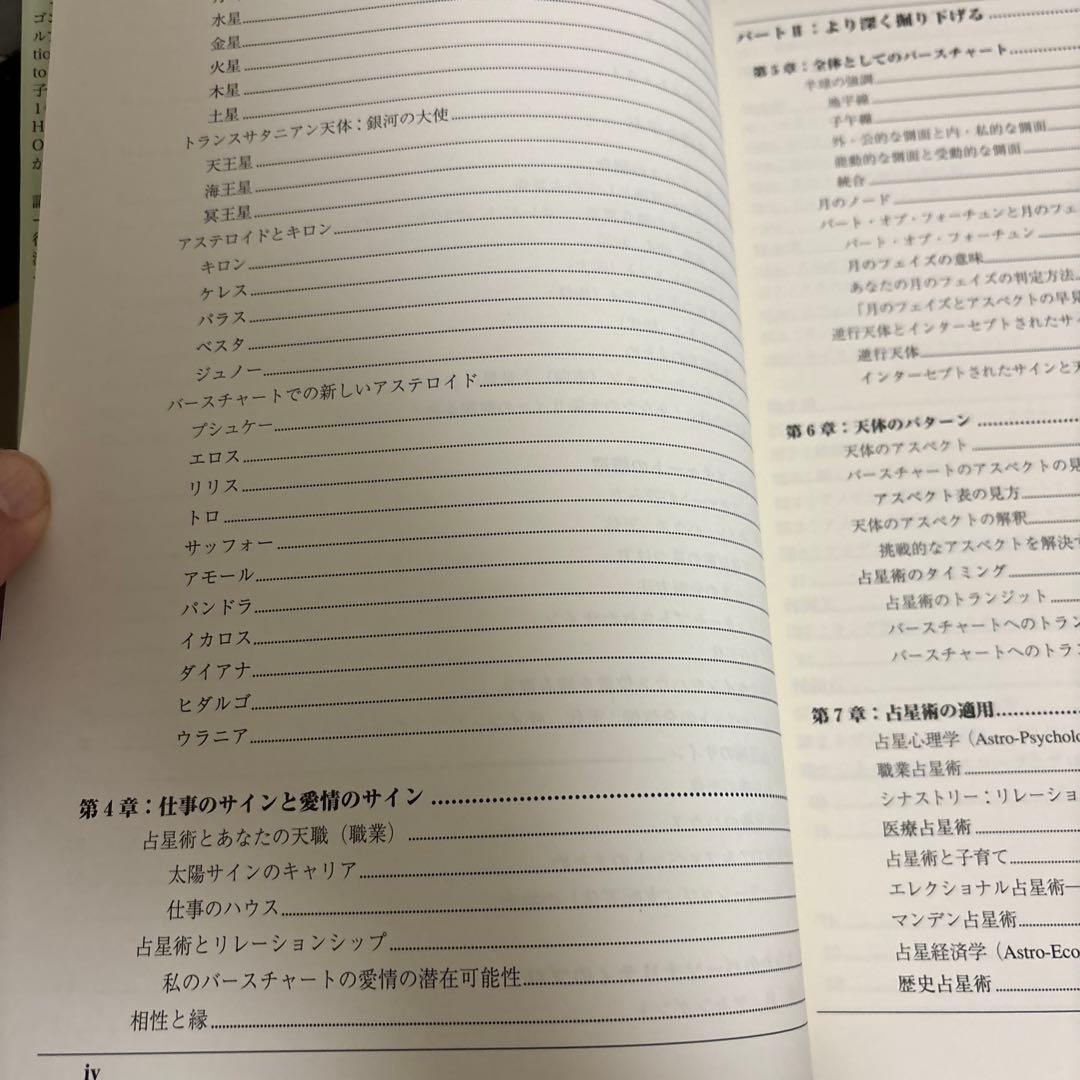 水星
金星
火星
木星
土星
トランスサタニアン天体：銀河の大使
天王星
海王星
冥王星
アステロイドとキロン
キロン
ケレス
パラス
ベスタ
ジュノー
バースチャートでの新しいアステロイド
プシュケー
エロス
リリス
トロ
サッフォー
アモール
パンドラ
イカロス
ダイアナ
ヒダルゴ
ウラニア
第4章：仕事のサインと愛情のサイン
占星術とあなたの天職（職業）
太陽サインのキャリア
仕事のハウス
占星術とリレーションシップ
私のバースチャートの愛情の潜在可能性
相性と縁
iv
パートⅡ：より深く掘り下げる
第5章：全体としてのバースチャート
半球の強調
地平線
子午線
外・公的な側面と内・私的な側面
能動的な側面と受動的な側面
統合
月のノード
パート・オブ・フォーチュンと月のフェ
パート・オブ・フォーチュン
月のフェイズの意味
あなたの月のフェイズの判定方法
「月のフェイズとアスペクトの早見
逆行天体とインターセプトされたサイ
逆行天体
インターセプトされたサインと天
第6章：天体のパターン
天体のアスペクト
バースチャートのアスペクトの見
アスペクト表の見方
天体のアスペクトの解釈
挑戦的なアスペクトを解決す
占星術のタイミング
占星術のトランジット
バースチャートへのトラン
バースチャートへのトラン
第7章：占星術の適用
占星心理学（Astro-Psycholo
職業占星術
シナストリー：リレーショ
医療占星術
占星術と子育て
エレクショナル占星術—
マンデン占星術
占星経済学（Astro-Eco
歴史占星術